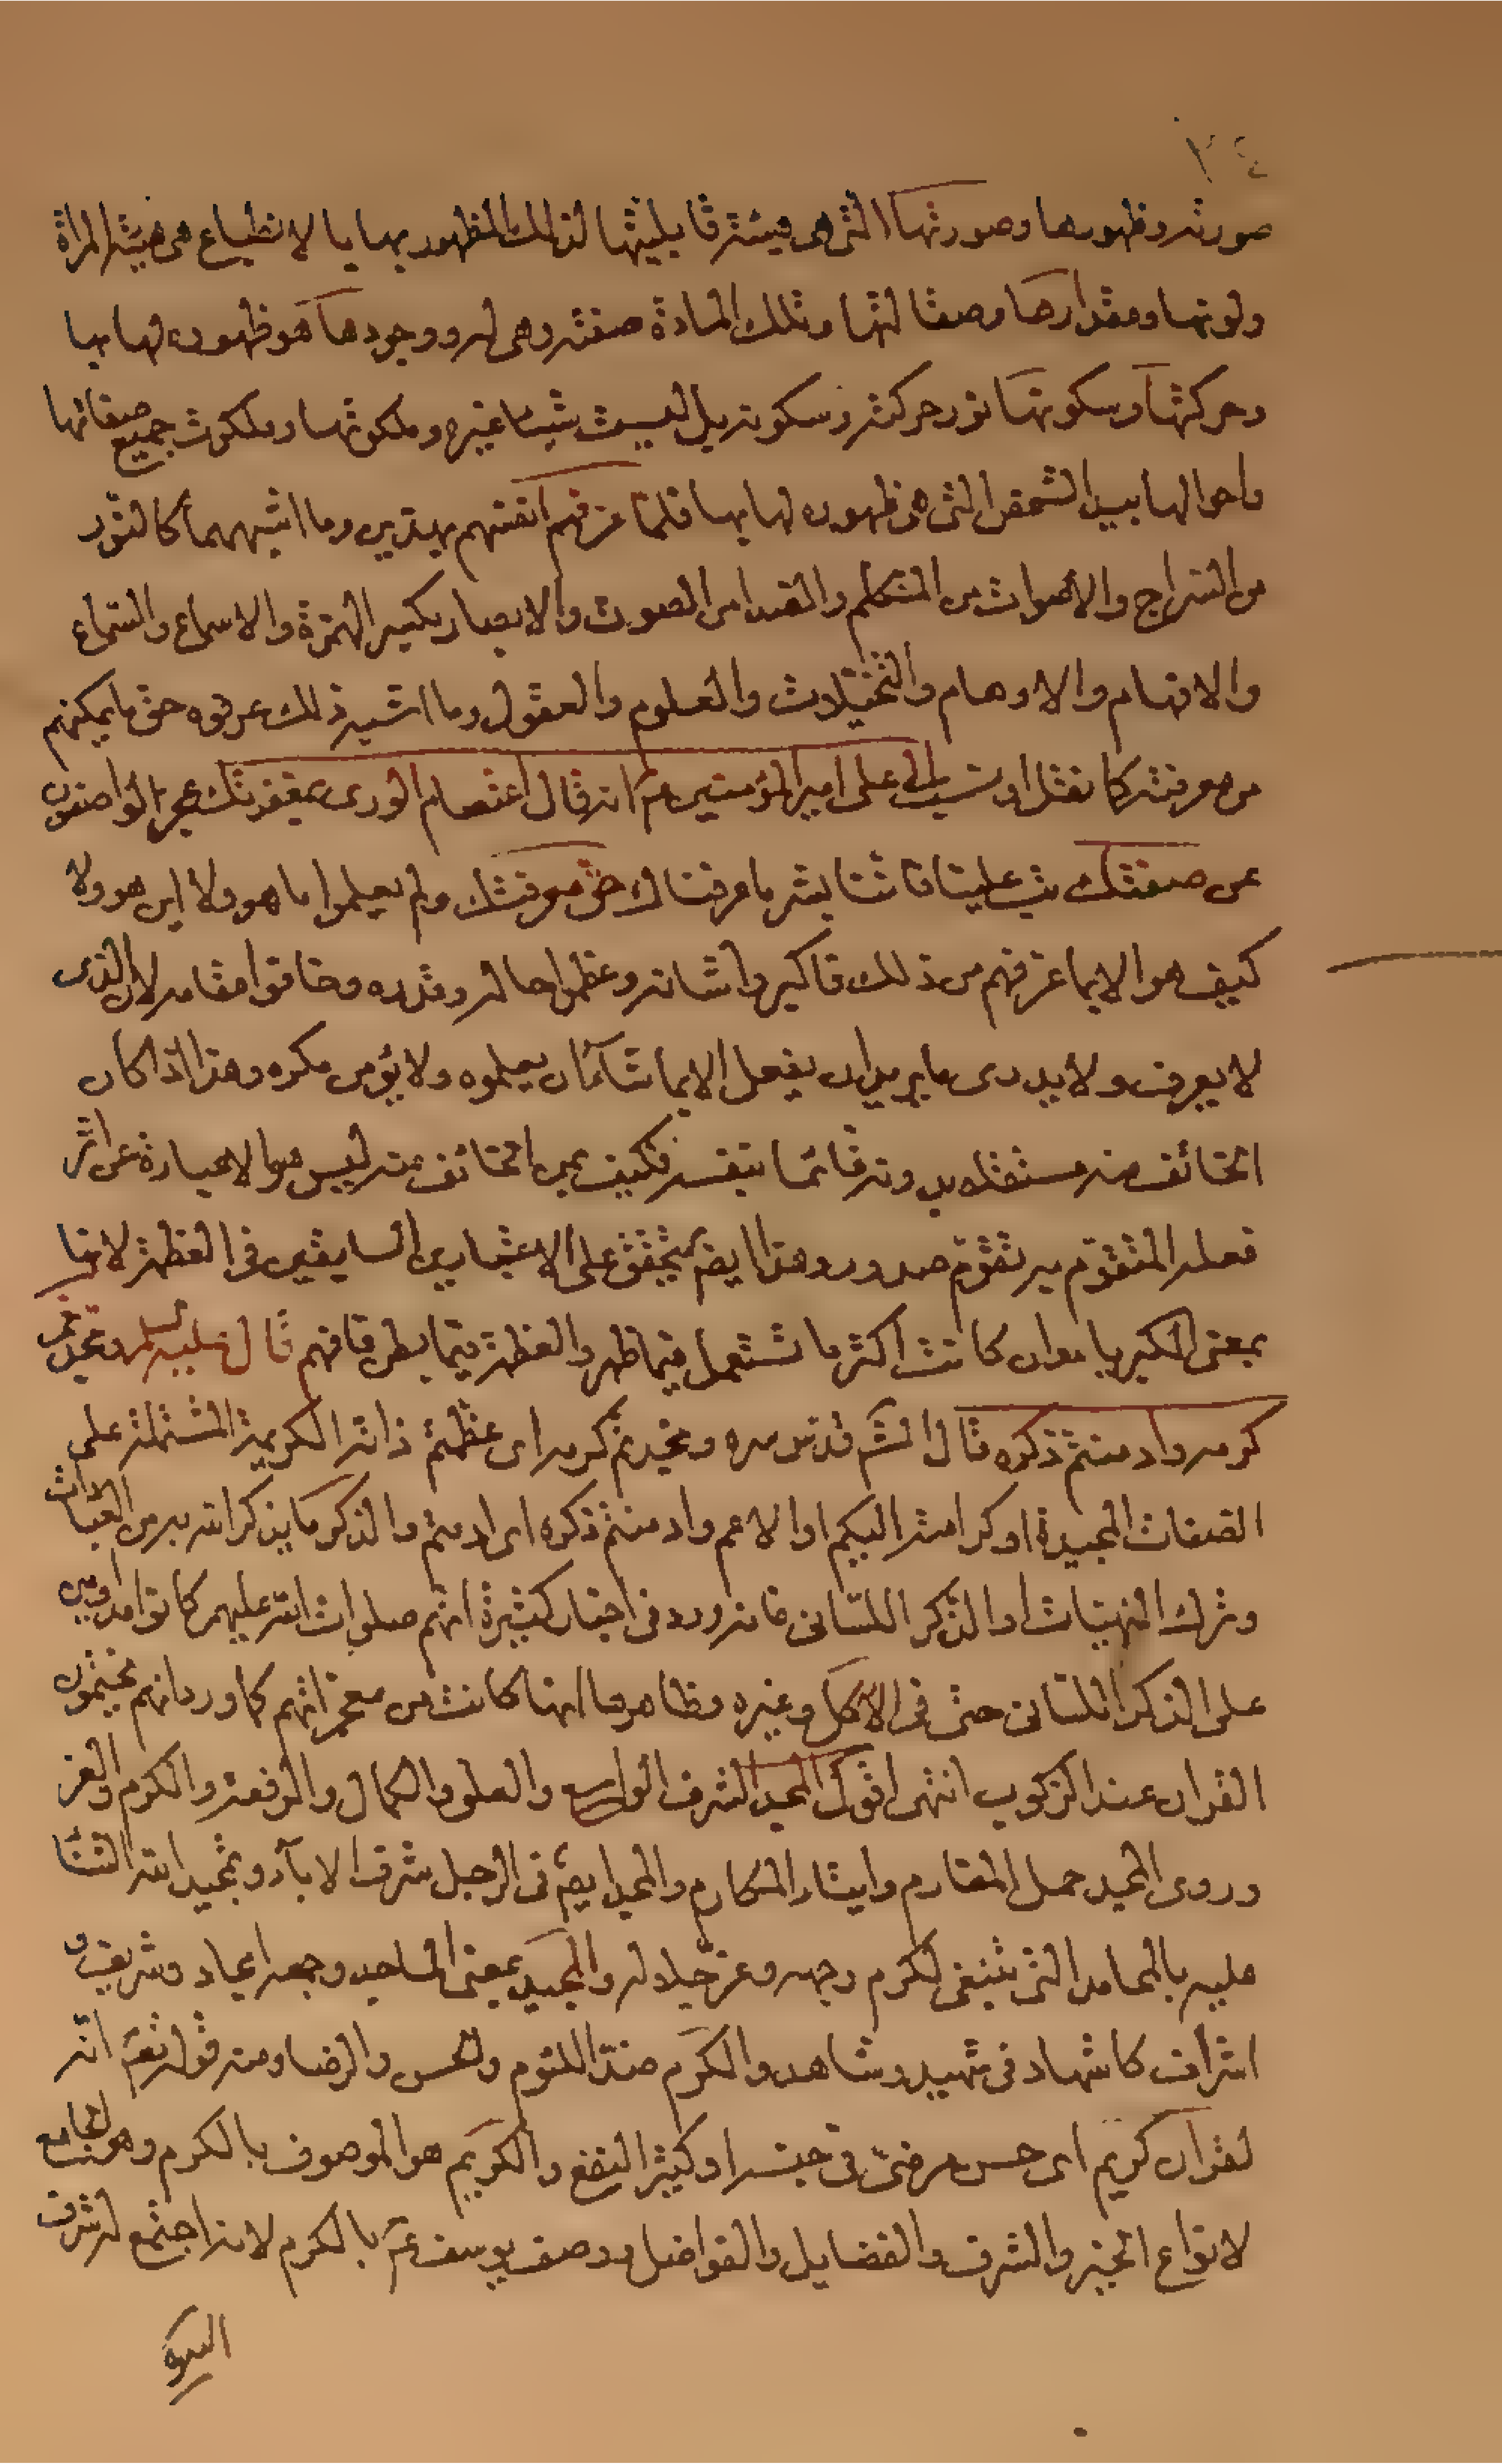 ٢٤
صورته وظهورها وصورتها التى هى هيئة قابليتها لذلك الظهور بها يا لانطباع هى هيئة المرآة
ولونها ومقدارها وصقالتها وتلك المادة صفته وهى له ووجودها هو ظهوره لها بها
وحركتها وسكونها نور حركته وسكونه بل ليست شيئا غيره وملكوتها وملكوت جميع صفاتها
واحوالها بيد الشخص التى هى ظهوره لها بها فلما عرفهم انفسهم بهذين وما اشبههما كالنور
من السراج والاصوات من المتكلم والصدا من الصوت والابصار بكسر الهمزة والاسماع والسماع
والافهام والاوهام والتخيلات والعلوم والعقول وما اشبه ذلك عرفوه حق ما يمكنهم
من معرفته كما نقل او نسب الى على امير المؤمنين عم انه قال اعتصام الورى بمغفرتك عجز الواصفون
عن صفتك تب علينا فاننا بشر ما عرفناك حق معرفتك ولم يعلموا ما هو ولا اين هو ولا
كيف هو الا بما عرفهم من ذلك فاكبروا شانه وعظموا حاله وقدره وخافوا مقامه لان الذى
لا يعرف ولا يدرى ما يريد ان يفعل الا بما شاء ان يعلموه ولا يؤمن مكره وهذا اذا كان
الخائف منه مستقلا بدونه قائما بنفسه فكيف بمن الخائف منه ليس هو الا عبارة عن اثر
فعله المتقوم به تقوم صدور وهذا ايضم يتحقق على الاعتبارين السابقين فى العظمة لانها
بمعنى الكبرياء وان كانت اكثر ما تستعمل فيما ظهر والعظمة فيما بطن فافهم قال عليه السلم ومجدتم
كرمه وادمنتم ذكره قال الش قدس سره ومجدتم كرمه اى عظمتم ذاته الكريمة المشتملة على
الصفات المجيدة او كرامته اليكم او الاعم وادمنتم ذكره اى ادمتم والذكر ما يذكر الله به من العبادات
وترك المنهيات او الذكر اللسانى فانه ورد فى اخبار كثيرة انهم صلوات الله عليهم كانوا مداومين
على الذكر اللسانى حتى فى الاكل وغيره وظاهرها انها كانت من معجزاتهم كما ورد انهم يختمون
القران عند الركوب انتهى اقول المجد الشرف الواسع والعلو والكمال والرفعة والكرم والعز
وروى المجد حمل المغارم وايثار المكارم والمجد ايضم فى الرجل شرف الاباء وتمجيد الله الثناء
عليه بالمحامد التى تنبغى لكرم وجهه وعز جلاله والمجيد بمعنى الماجد وجمعه امجاد وشريف و
اشراف كاشهاد فى شهيد وشاهد والكرم ضد اللئوم والحسن والرضا ومنه قوله تعم انه
لقران كريم اى حسن مرضى فى جنسه او كثير النفع والكريم هو الموصوف بالكرم وهو الجامع
لانواع الخير والشرف والفضايل والفواضل ووصف يوسف عم بالكرم لانه اجتمع له شرف
النبوة